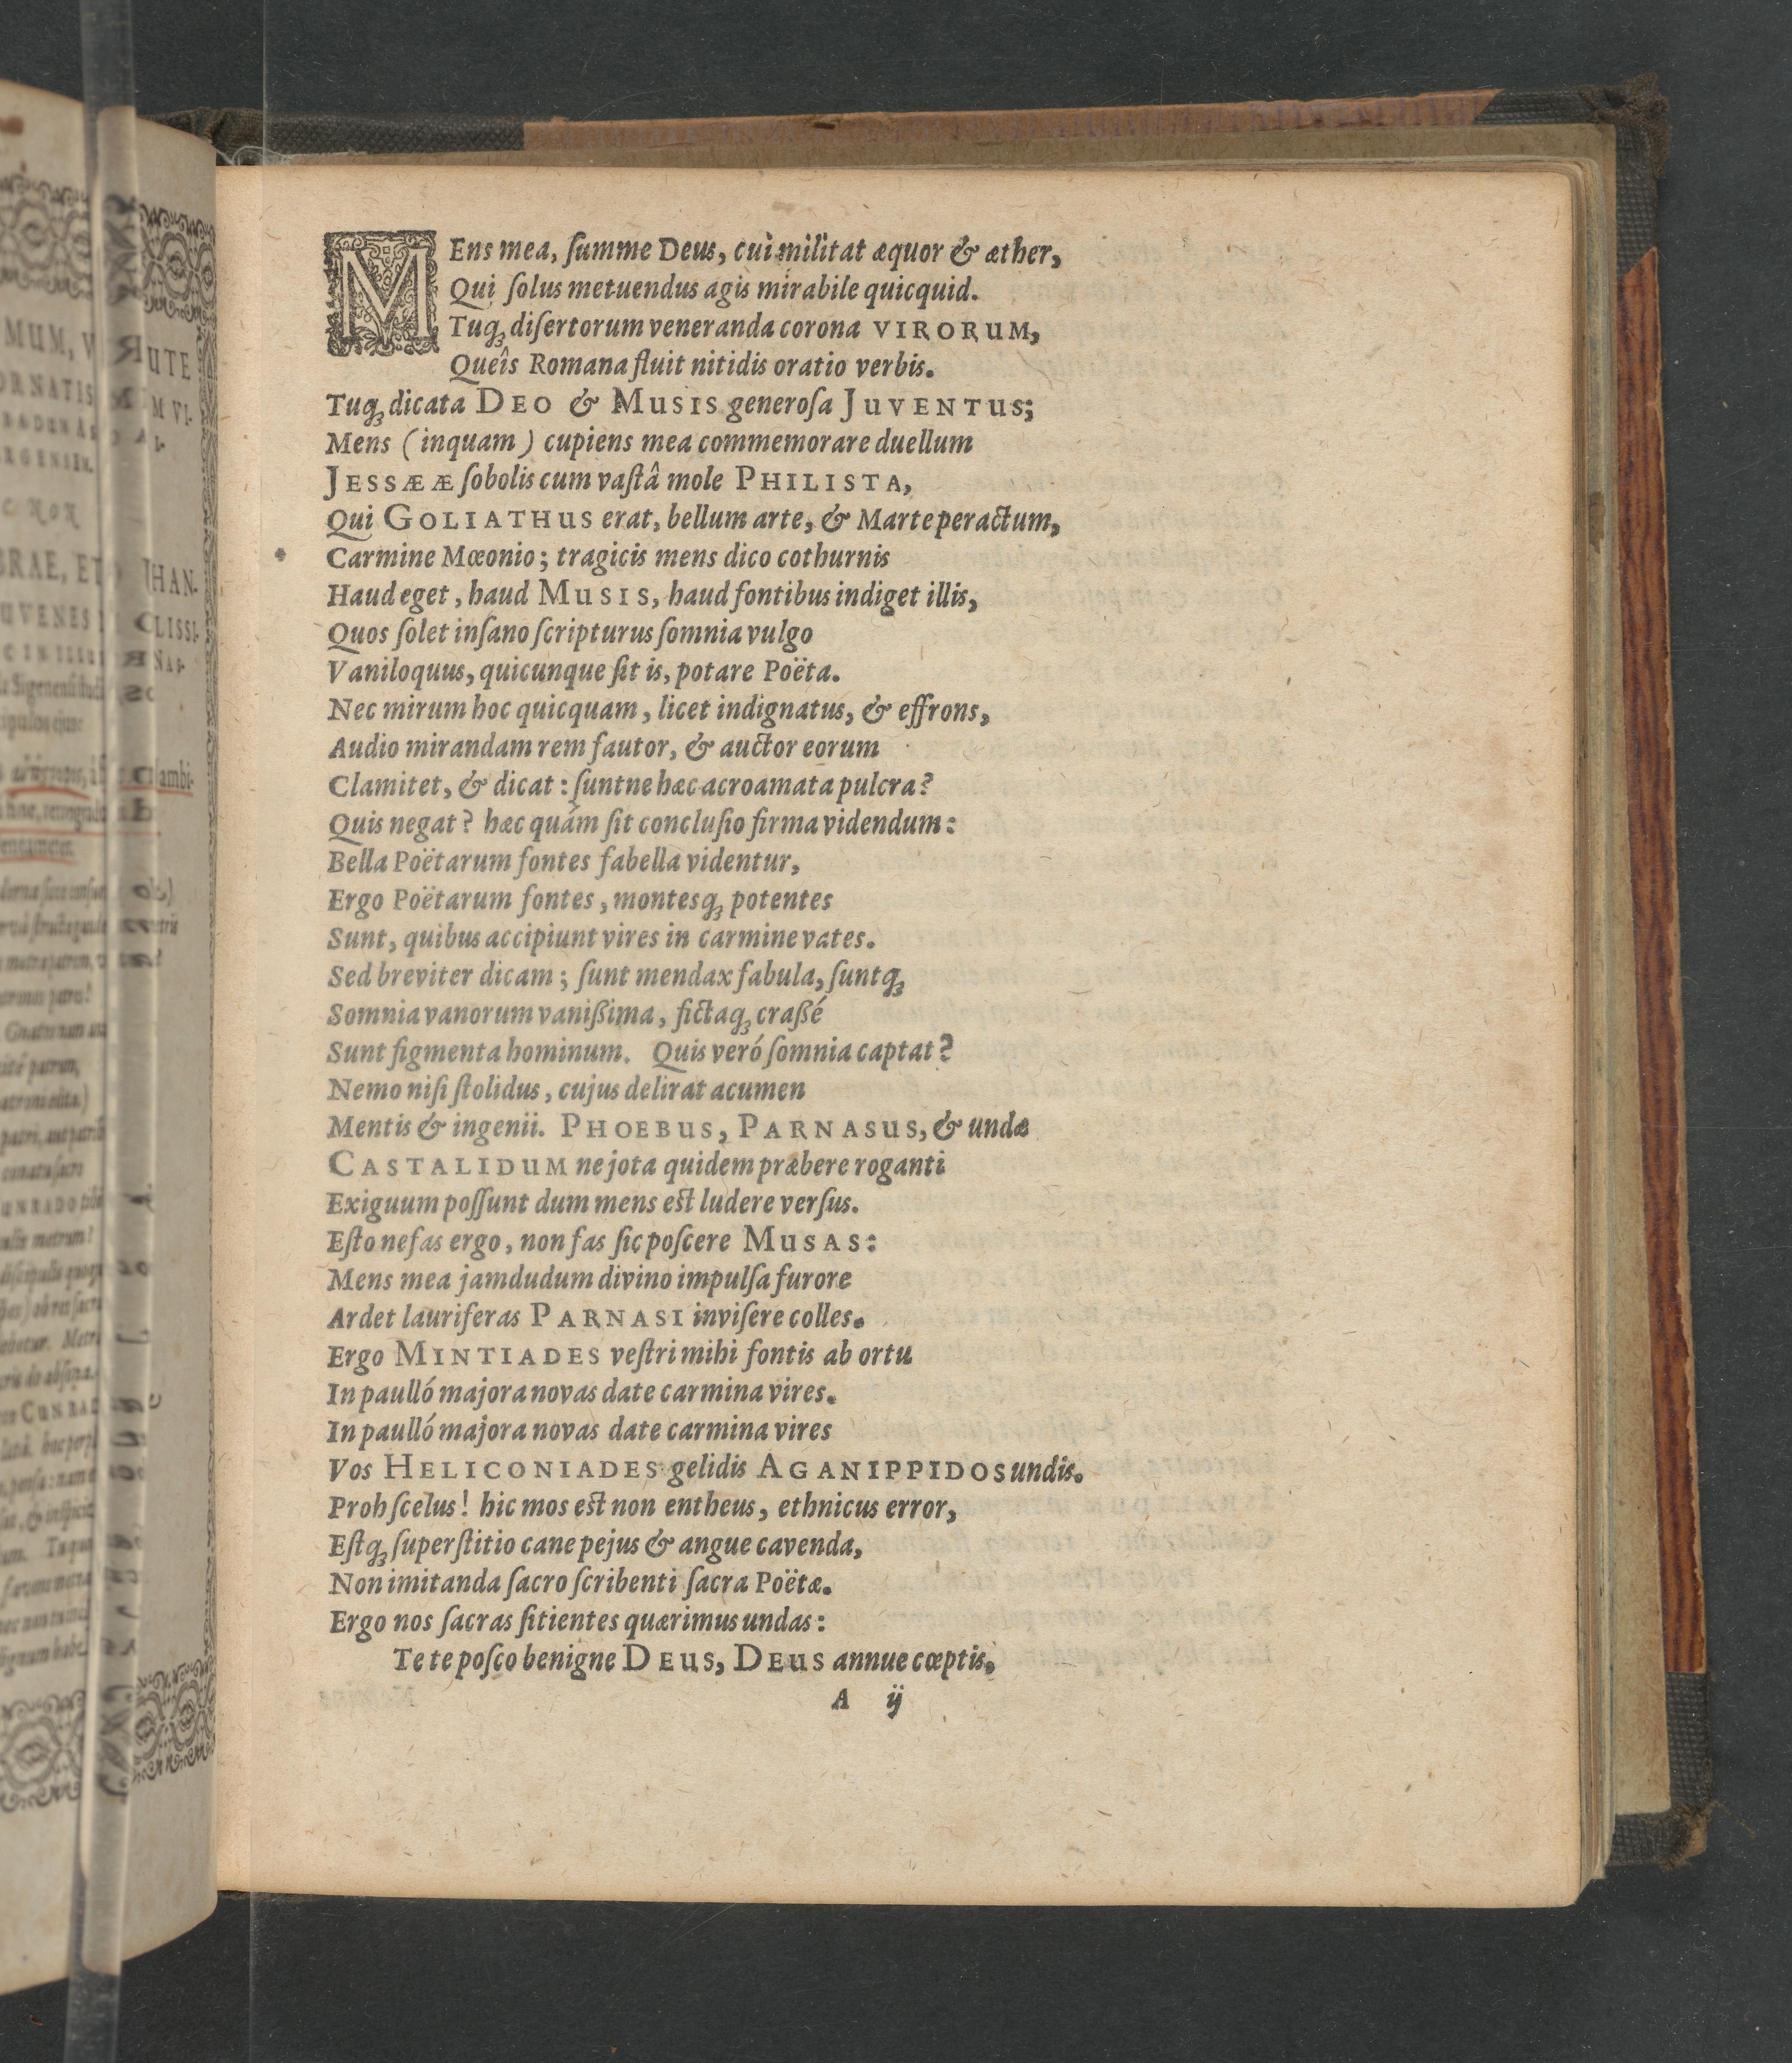 MEns mea, ſumme Deus, cui militat æquor & æther,
Qui ſolus metuendus agis mirabile quicquid.
Tuq́ꝫ diſertorum veneranda corona VIRORUM,
Queîs Romana fluit nitidis oratio verbis.
Tuq́ꝫ dicata DEO & MUSIS generoſa JUVENTUS;
Mens (inquam) cupiens mea commemorare duellum
JESSÆÆ ſobolis cum vaſtâ mole PHILISTA,
Qui GOLIATHUS erat, bellum arte, & Marte peractum,
Carmine Mœonio; tragicis mens dico cothurnis
Haud eget, haud MUSIS, haud fontibus indiget illis,
Quos ſolet inſano ſcripturus ſomnia vulgo
Vaniloquus, quicunque ſit is, potare Poëta.
Nec mirum hoc quicquam, licet indignatus, & effrons,
Audio mirandam rem fautor, & auctor eorum
Clamitet, & dicat: ſuntne hæc acroamata pulcra?
Quis negat? hæc quám ſit concluſio firma videndum:
Bella Poëtarum fontes fabella videntur,
Ergo Poëtarum fontes, montesq́ꝫ potentes
Sunt, quibus accipiunt vires in carmine vates.
Sed breviter dicam; ſunt mendax fabula, ſuntq́ꝫ
Somnia vanorum vanißima, fictaq́ꝫ craßé
Sunt figmenta hominum. Quis veró ſomnia captat?
Nemo niſi ſtolidus, cujus delirat acumen
Mentis & ingenii. PHOEBUS, PARNASUS, & undæ
CASTALIDUM ne jota quidem præbere roganti
Exiguum poſſunt dum mens eſt ludere verſus.
Eſto nefas ergo, non fas ſic poſcere MUSAS:
Mens mea jamdudum divino impulſa furore
Ardet lauriferas PARNASI inviſere colles.
Ergo MINTIADES veſtri mihi fontis ab ortu
In paulló majora novas date carmina vires.
In paulló majora novas date carmina vires
Vos HELICONIADES gelidis AGANIPPIDOS undis.
Proh ſcelus! hic mos eſt non entheus, ethnicus error,
Eſtq́ꝫ ſuperſtitio cane pejus & angue cavenda,
Non imitanda ſacro ſcribenti ſacra Poëtæ.
Ergo nos ſacras ſitientes quærimus undas:
Te te poſco benigne DEUS, DEUS annue cœptis.
A ij